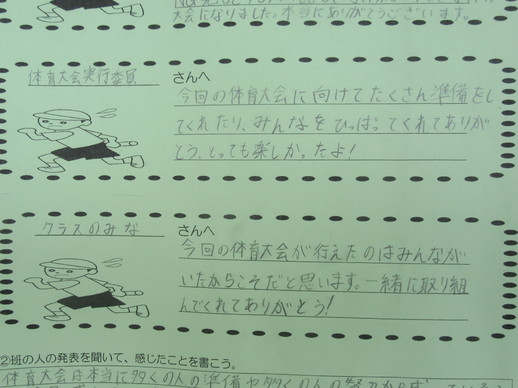 大会になりました。本当にありがとうございます。
体育大会実行委員 さんへ
今回の体育大会に向けてたくさん準備をし
てくれたり、みんなをひっぱってくれてありが
とう、とっても楽しかったよ!
クラスのみな さんへ
今回の体育大会が行えたのはみんなが
いたからこそだと思います。一緒に取り組
んでくれてありがとう!
②班の人の発表を聞いて、感じたことを書こう。
体育大会は本当に多くの人の準備や多くの人の努力から